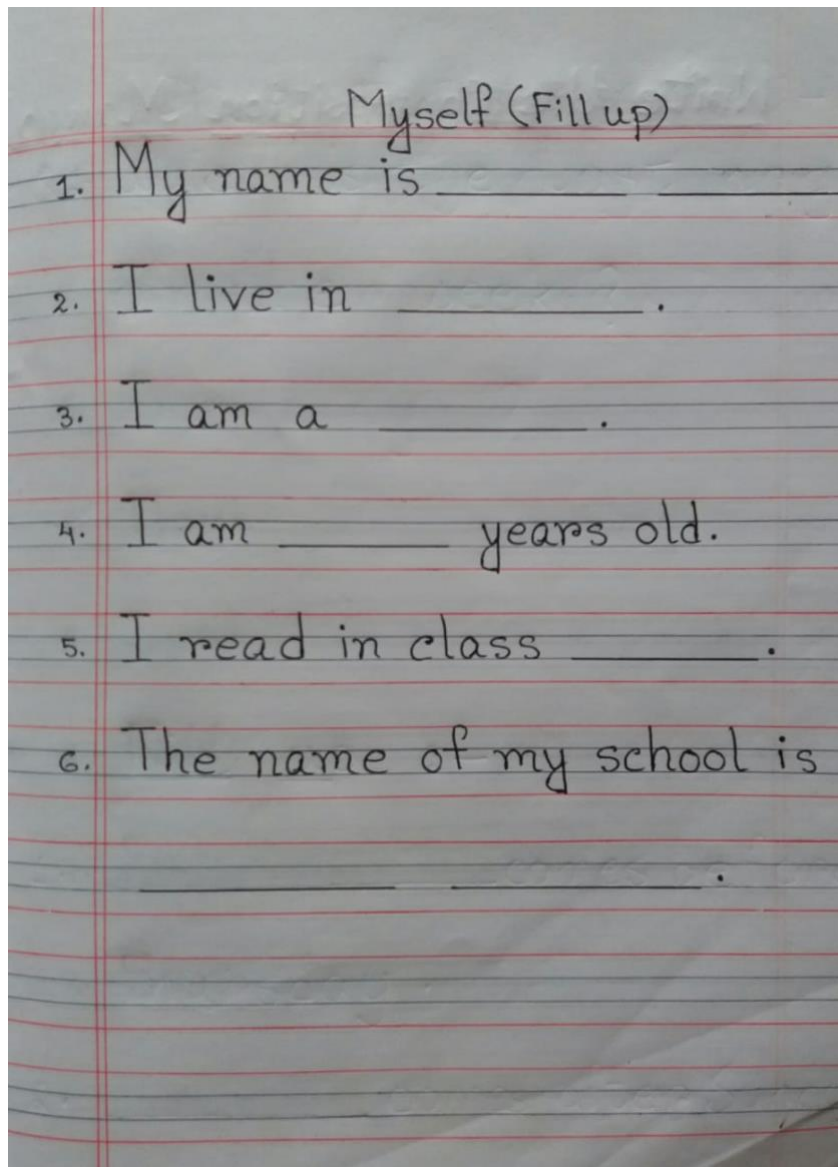 Myself (Fill up)
1. My name is ________ ________
2. I live in ________ .
3. I am a ________ .
4. I am ________ years old.
5. I read in class ________ .
6. The name of my school is
________ ________ .